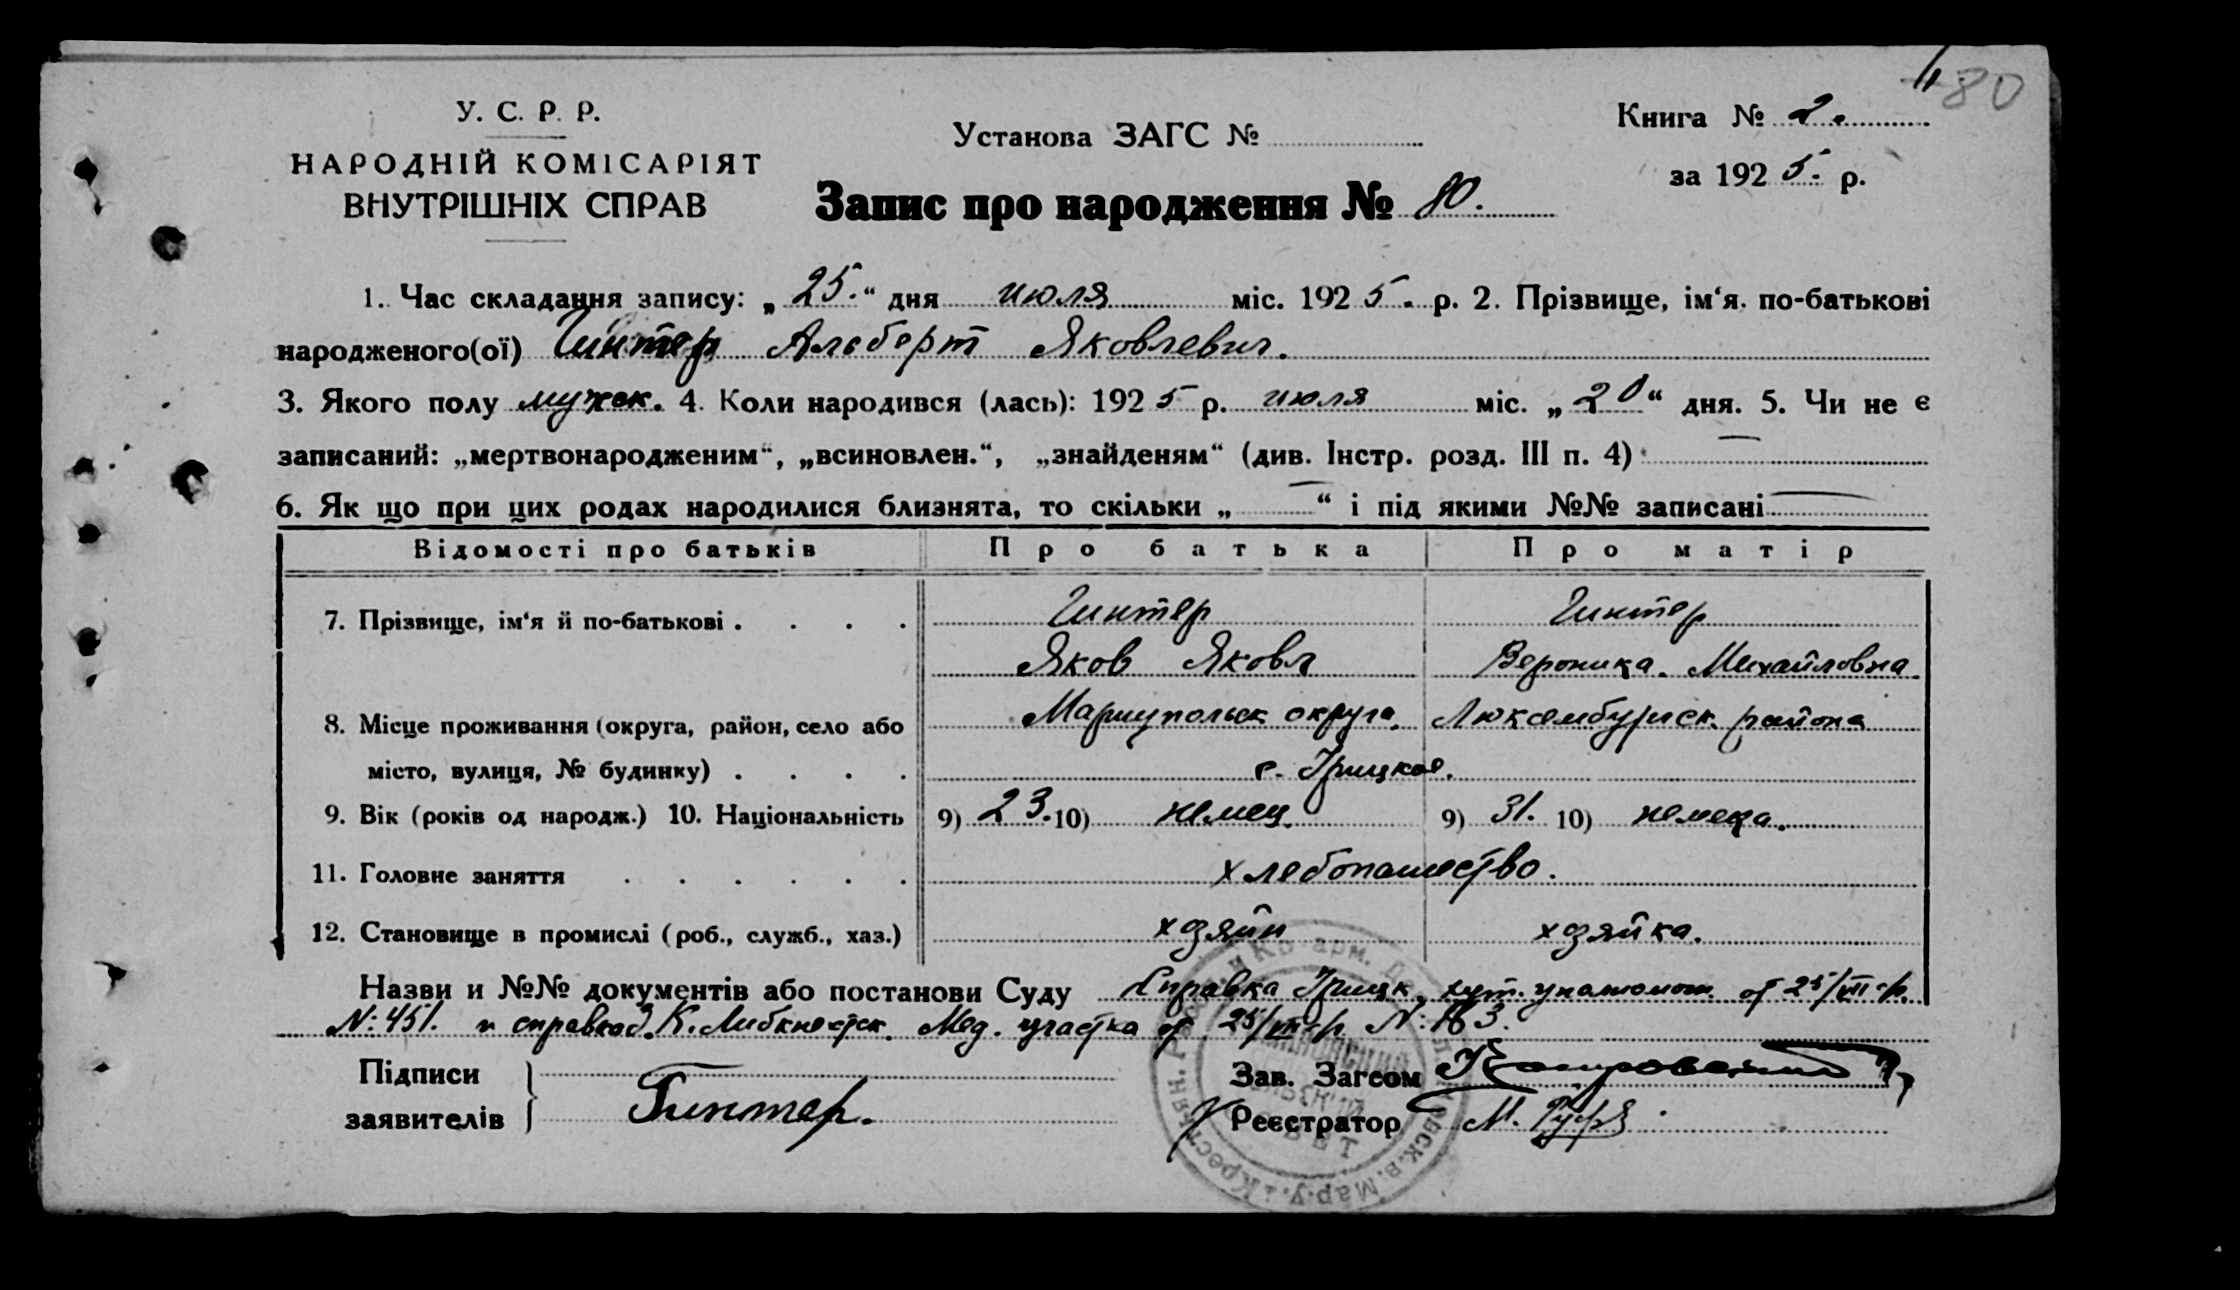 80
У. С. Р. Р.
НАРОДНІЙ КОМІСАРІЯТ
ВНУТРІШНІХ СПРАВ
Установа ЗАГС №
Книга № 2.
за 1925. р.
Запис про народження № 80.
1. Час складання запису: „25.“ дня июля міс. 1925. р. 2. Прізвище, ім‘я. по-батькові
народженого(ої) Гинтер Альберт Яковлевич.
3. Якого полу мужск. 4. Коли народився (лась): 1925 р. июля міс. „20“ дня. 5. Чи не є
записаний: „мертвонародженим“, „всиновлен.“, „знайденям“ (див. Інстр. розд. III п. 4) —
6. Як що при цих родах народилися близнята, то скільки „—“ і під якими №№ записані —
Відомості про батьків Про батька Про матір
7. Прізвище, ім‘я й по-батькові . . . . Гинтер Гинтер
Яков Яковл Вероника. Михайловна.
8. Місце проживання (округа, район, село або Мариупольск округа. Люксембургск. района
місто, вулиця, № будинку) . . . . с. Грицкое.
9. Вік (років од народж.) 10. Національність 9) 23. 10) немец. 9) 31. 10) немека.
11. Головне заняття . . . . . . хлебопашество.
12. Становище в промислі (роб., служб., хаз.) хозяйн хозяйка.
Назви и №№ документів або постанови Суду Справка Грицк. хут. уполномоч. от 25/VII-с/г
N: 451. и справкой К. Либкнехтск. Мед. участка от 25/VII с/г N:
Підписи
заявителів Гинтер.
Зав. Загсом
Реєстратор М.